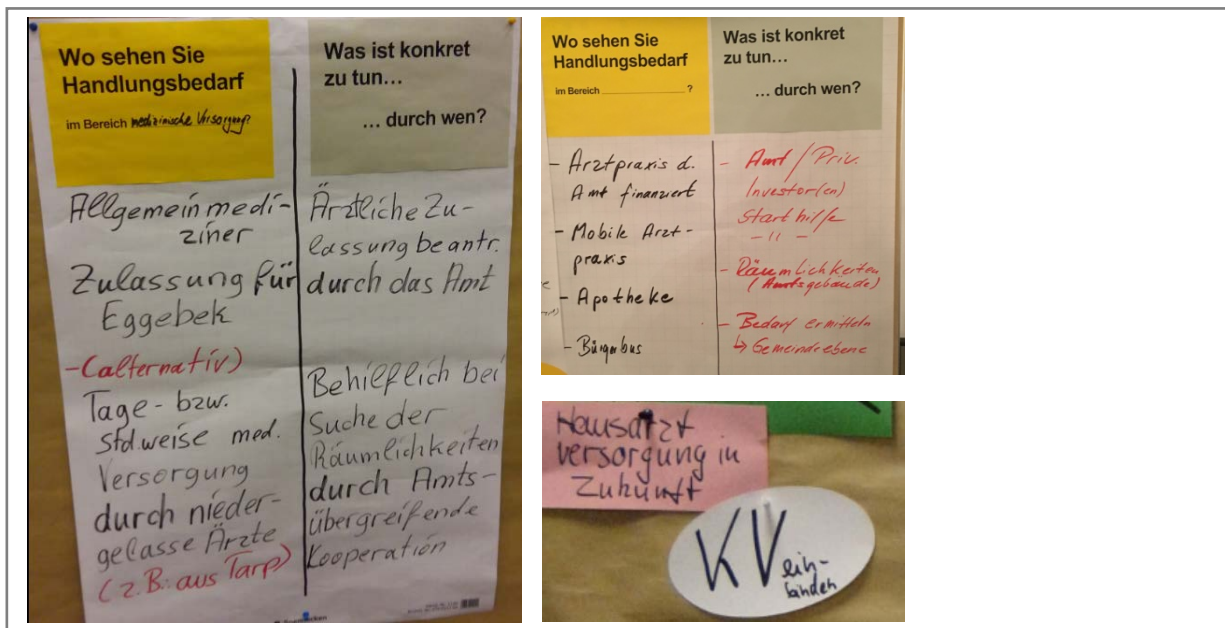 Wo sehen Sie
Handlungsbedarf
im Bereich medizinische Versorgung?
Allgemeinmedi-
ziner
Zulassung für
Eggebek
-(alternativ)
Tage- bzw.
Std.weise med.
Versorgung
durch nieder-
gelasse Ärzte
(z.B.: aus Tarp)
Was ist konkret
zu tun...
... durch wen?
Ärztliche Zu-
lassung beantr.
durch das Amt
Behilflich bei
Suche der
Räumlichkeiten
durch Amts-
übergreifende
Kooperation
Wo sehen Sie
Handlungsbedarf
im Bereich ____________?
- Arztpraxis d.
Amt finanziert
- Mobile Arzt-
praxis
- Apotheke
- Bürgerbus
Was ist konkret
zu tun...
... durch wen?
- Amt / Priv.
Investor(en)
Starthilfe
- " -
- Räumlichkeiten
(Amtsgebäude)
- Bedarf ermitteln
↳ Gemeindeebene
Hausarzt
versorgung in
Zukunft
KV ein-
binden